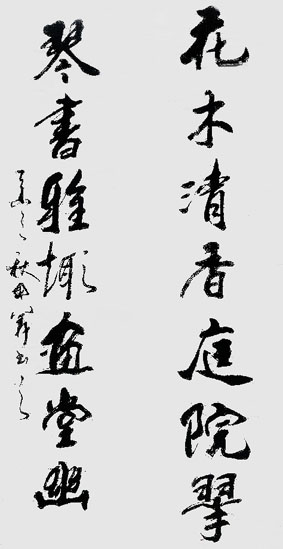 花木清香庭院翠
琴書雅趣畫堂幽